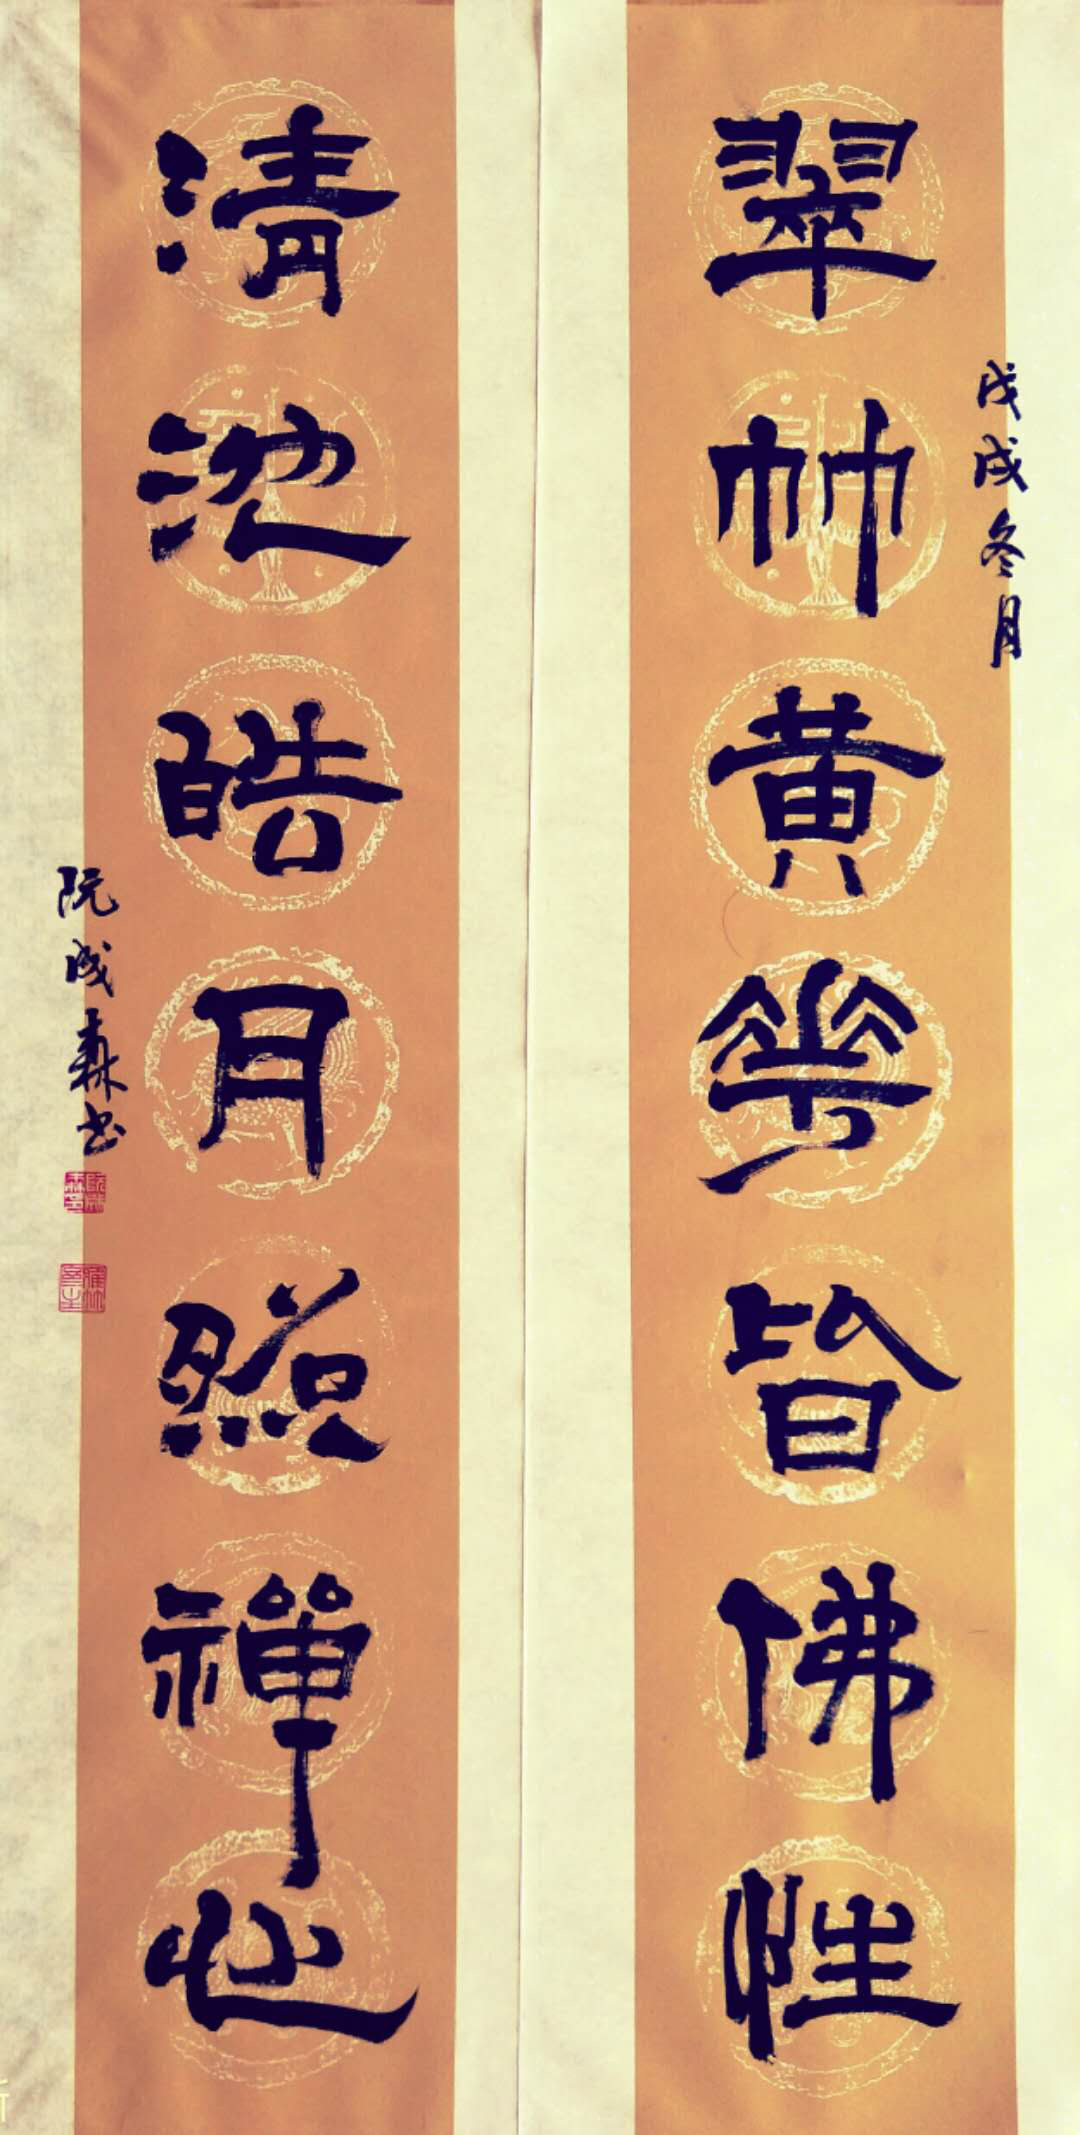 戊戌冬月
翠竹黄華皆佛性
清池皓月照禅心
阮成森书